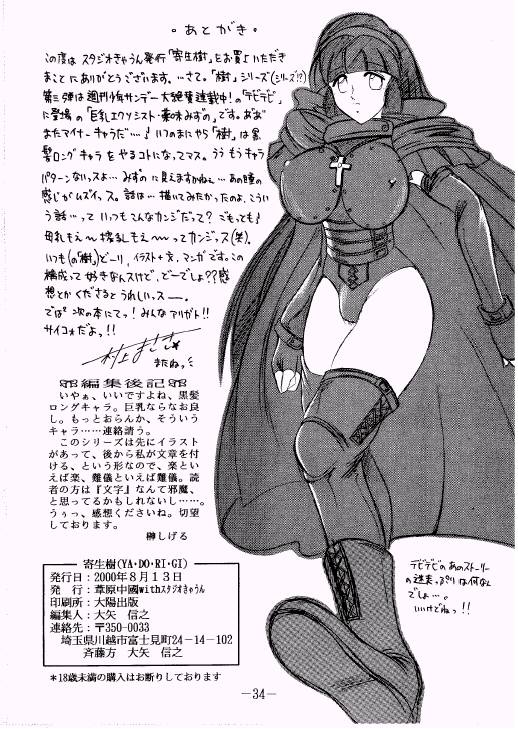 ・あとがき・
この度は スタジオきゃうん発行「寄生樹」をお買上いただき
まことにありがとうございます。…さて。「樹」シリーズ(シリーズ!?)
第三弾は週刊少年サンデー大絶賛連載中!の「デビデビ」
に登場の「巨乳エクソシスト・薬味みずの」です。ああ
またマイナーキャラだ…♪いつのまにやら「樹」は黒
髪ロングキャラをやるコトになってマス。うう もうキャラ
パターンないっスよ…みずの に見えますかねぇ…あの瞳の
感じがムズイっス。話は…描いてみたかったのよ、こうい
う話…って いつもこんなカンジだって? ごもっとも♪
母乳もえ〜 搾乳もえ〜ってカンジっス(笑)。
いつも(の「樹」)どーり、イラスト+文、マンガです。この
構成って 好きなんスけど、どーでしょ?? 感
想とかくださるとうれしいっス——。
では 次の本にてっ! みんなアリガト!!
サイコォだよっ!!
またねっミ
編集後記
いやぁ、いいですよね、黒髪
ロングキャラ。巨乳ならなお良
し。もっとおらんか、そういう
キャラ……連絡請う。
このシリーズは先にイラスト
があって、後から私が文章を付
ける、という形なので、楽とい
えば楽、難儀といえば難儀。読
者の方は『文字』なんて邪魔、
と思ってるかもしれないし……。
うぅっ、感想くださいね。切望
しております。
榊しげる
寄生樹(YA・DO・RI・GI)
発行日:2000年8月13日
発 行:葦原中國withスタジオきゃうん
印刷所:大陽出版
編集人:大矢 信之
連絡先:〒350-0033
埼玉県川越市富士見町24-14-102
斉藤方 大矢 信之
*18歳未満の購入はお断りしております
デビデビのあのストーリー
の迷走っぷりは何なん
でしょ…。
いいけどねっ!!
—34—